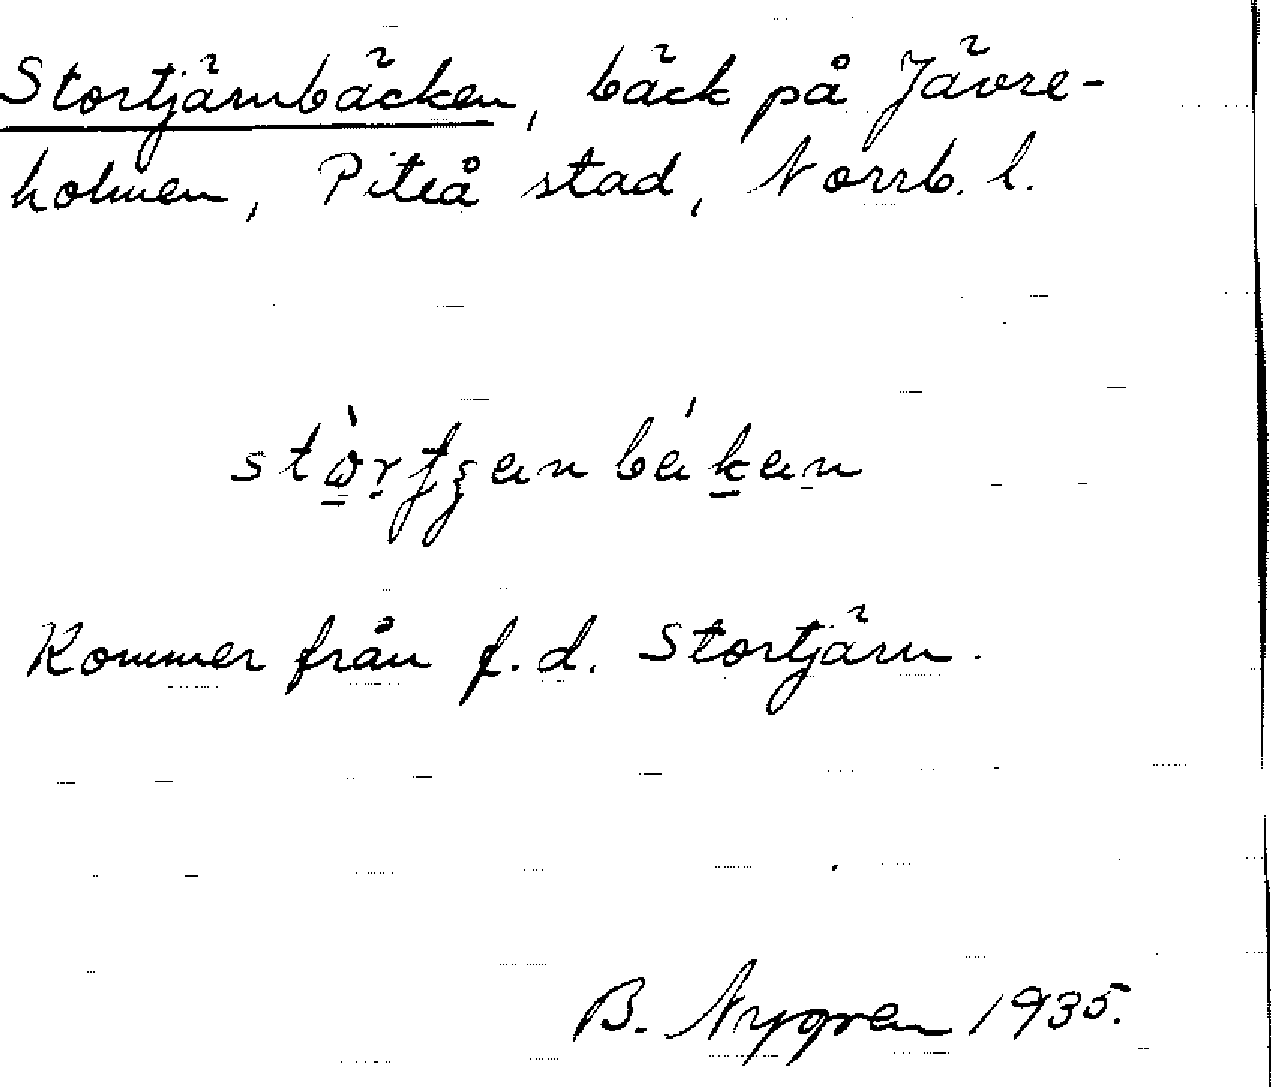 Stortjärnbäcken, bäck på Jävre-
holmen, Piteå stad, Norrb. l.
Kommer från f.d. Stortjärn.
B. Nygren 1935.